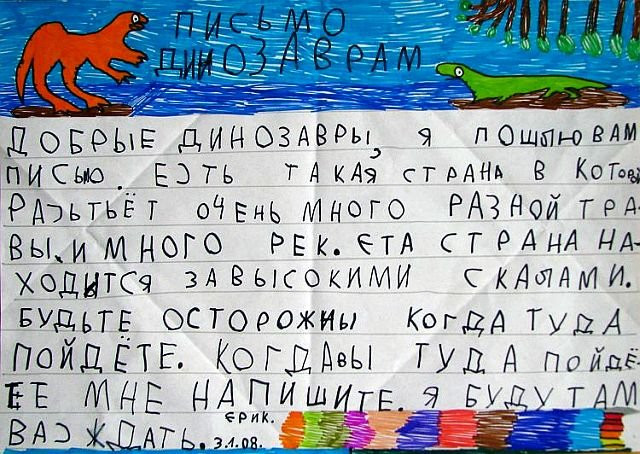 ПИСЬМО
ДИНОЗАВРАМ
ДОБРЫЕ ДИНОЗАВРЫ, Я ПОШЛЮ ВАМ
ПИСЬЮ. ЕСТЬ ТАКАЯ СТРАНА В КОТОРЫ
РАЗЬТЬЁТ ОЧЕНЬ МНОГО РАЗНОЙ ТРА-
ВЫ. И МНОГО РЕК. ЄТА СТРАНА НА-
ХОДИТСЯ ЗА ВЫСОКИМИ СКАЛАМИ.
БУДЬТЕ ОСТОРОЖНЫ КОГДА ТУДА
ПОЙДЁТЕ. КОГДА ВЫ ТУДА ПОЙДЁ-
ТЕ МНЕ НАПИШИТЕ. Я БУДУ ТАМ
ВАС ЖДАТЬ. ЄРИК.
3.1.08.